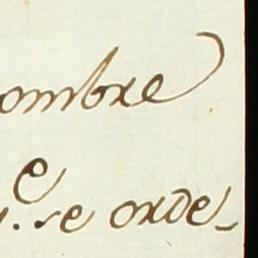 ombre
e
. se orde-